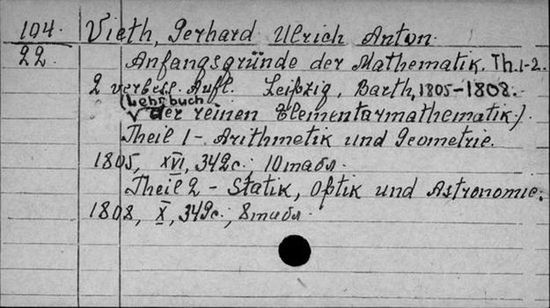 104. Vieth, Gerhard Ulrich Anton.
22 Anfangsgründe der Mathematik. Th. 1-2.
2 verbess. Aufl. Leipzig, Barth, 1805-1808.
(Lehrbuch
der reinen Elementarmathematik.)
Theil 1 - Arithmetik und Geometrie.
1805, XVI, 342 с. 10 табл.
Theil 2 - Statik, Optik und Astronomie.
1808, X, 349 с.; 8 табл.